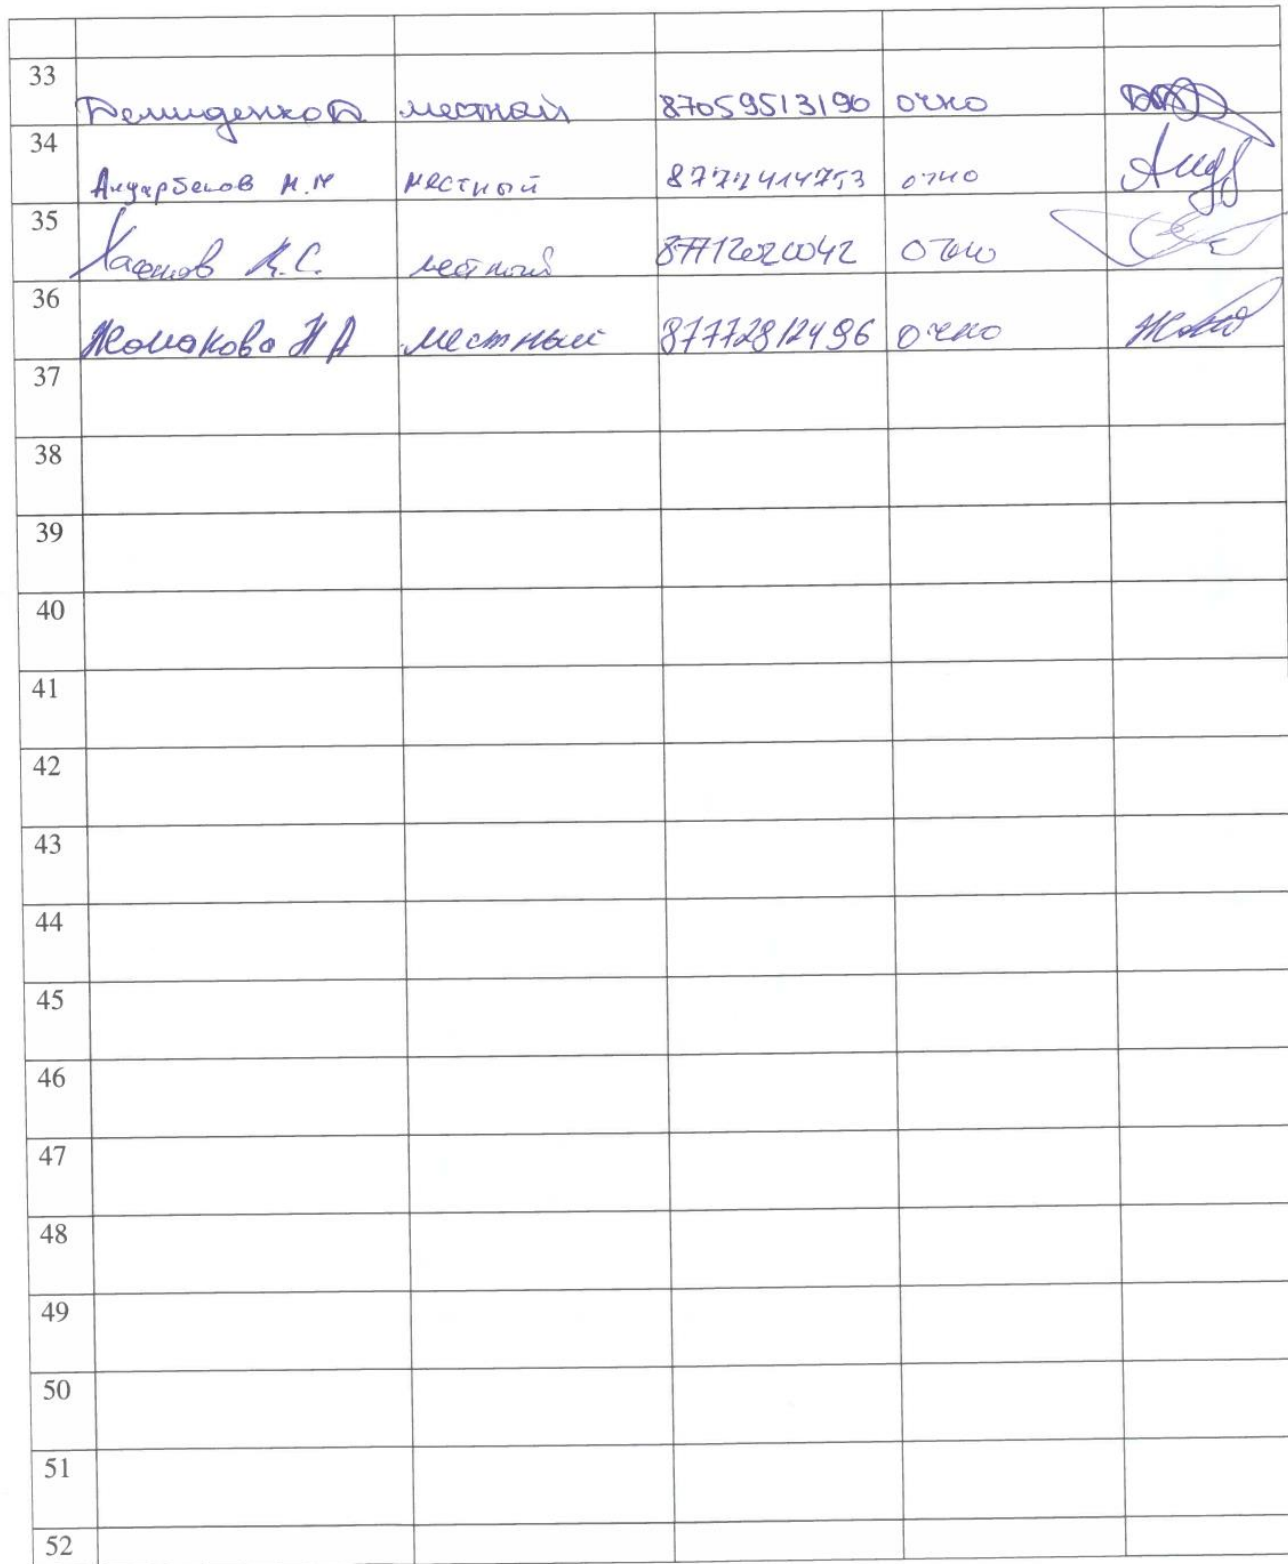 33
Демиденко В местный 87059513190 очно
34
Андарбеков М.М местный очно
35
К.С. местный очно
36
Жомакова Н А местный 87772812496 очно
37
38
39
40
41
42
43
44
45
46
47
48
49
50
51
52